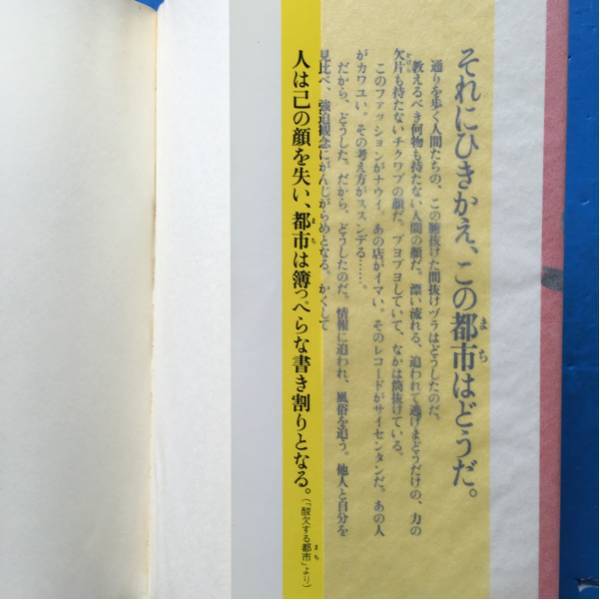 それにひきかえ、この都市はどうだ。
通りを歩く人間たちの、この腑抜けた間抜けヅラはどうしたのだ。
教えるべき何物も持たない人間の顔だ。漂い流れる、追われて逃げまどうだけの、力の
欠片も持たないチクワブの顔だ。ブヨブヨしていて、なかは筒抜けている。
このファッションがナウイ。あの店がイマい。そのレコードがサイセンタンだ。あの人
がカワユい。その考え方がススンデる……。
だから、どうした。だから、どうしたのだ。情報に追われ、風俗を追う。他人と自分を
見比べ、強迫観念にがんじがらめとなる。かくして
人は己の顔を失い、都市は簿っぺらな書き割りとなる。(「酸欠する都市」より)